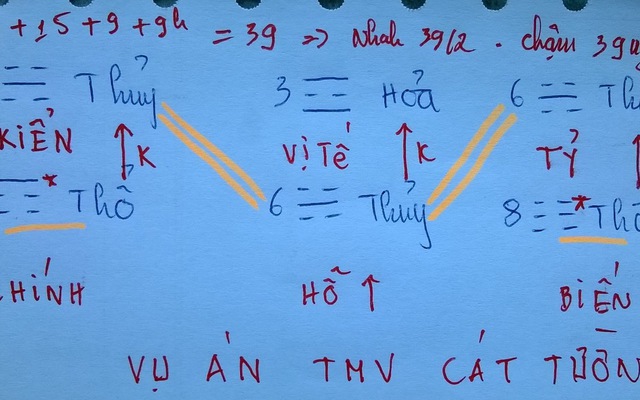 + 15 + 9 + 9h = 39 => Nhah 39/2 . chậm 39
Thủy 3 Hỏa 6 Th
KIỂN ↑ K VỊ TẾ ↑ K TỶ ↑
* Thổ 6 Thủy 8 * Thổ
HÍNH HỖ ↑ BIẾN
VỤ ÁN TMV CÁT TƯỜN